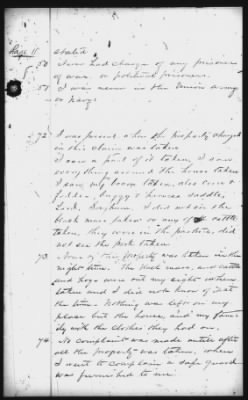 Page 11
states
50 I never had charge of any prisoners
of war, or political prisoners.
51 I was never in the Union army
or Navy
72 I was present when the property charged
in this claim was taken
I saw a part of it taken, I saw
everything around the house taken
I saw my bacon taken, also corn &
fodder, buggy & harness saddles,
Lard,         I did not see the
black mare taken or any of cattle
taken, they were in the pasture, did
not see the pork taken.
73 None of the property was taken in the
night time. The black mare, and cattle
and hogs were not in my sight when
taken and I did not know of it at
the time. Nothing was left on my
place but the house, and my fami-
ly with the clothes they had on.
74 No complaint was made until after
all the property was taken, when
I went to complain a safe guard
was furnished to me